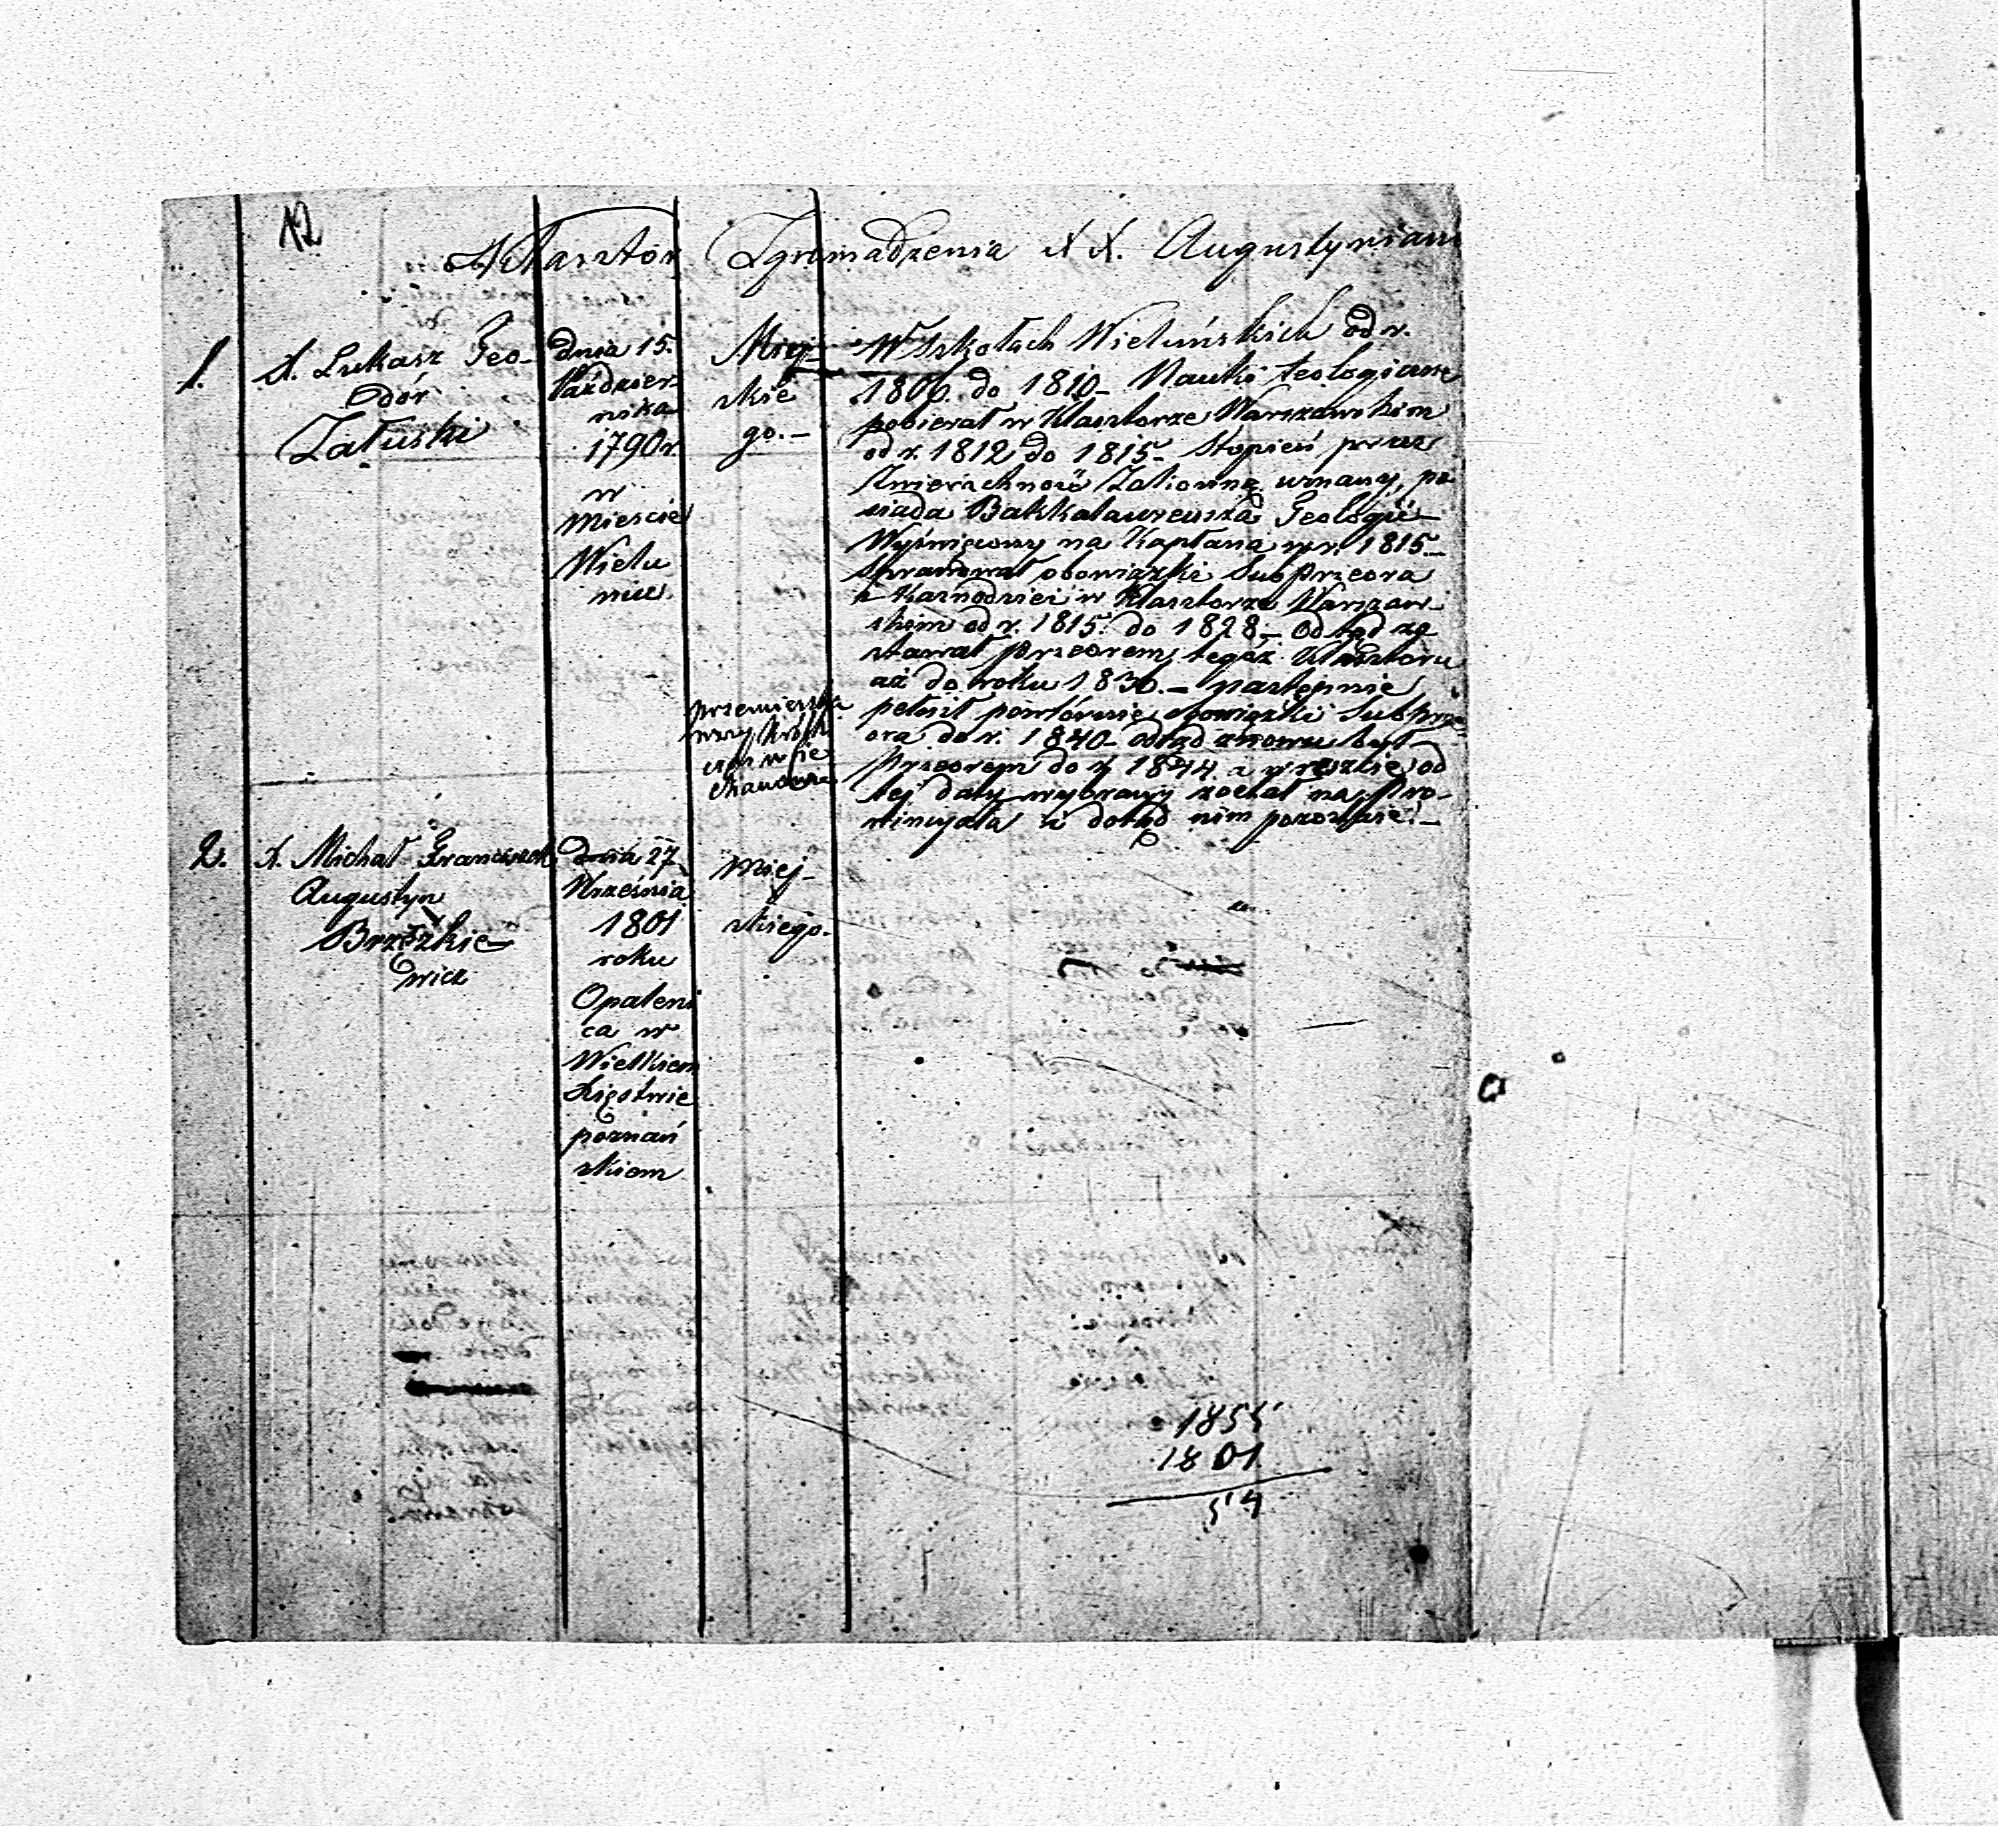 12
Klasztor Zgromadzenia XX. Augustynian
1.
X. Łukasz Teo-
dór
Załuski
dnia 15.
Paździer-
nika
1790 r.
w
Mieście
Wielu
niu
Miej-
skie
go.-
W Szkołach Wieluńskich od r.
1806. do 1810- Nauki teologiczne
pobierał w Klasztorze Warszawskim
od r. 1812 do 1815- Stopień przez
Zwierzchność Zakonną uznany, po
siada Bakkalaureusza Teologii-
Wyświęcony na Kapłana w r. 1815-
Sprawował obowiązki Subprzeora
i Kaznodziei w Klasztorze Warszaw-
skim od r. 1815. do 1828- Odtąd zo
stawał Przeorem tegoż Klasztoru
aż do roku 1836.- następnie
pełnił powtórnie obowiązki Subprze
ora do r. 1840- odtąd znowu był
Przeorem do r. 1844 a wreszcie od
tej daty wybrany został na Pro-
wincyała i dotąd nim pozostaje.-
przemieszka
wszy krótki
czas w Cie
chanowie
2.
X. Michał Franciszek
Augustyn
Brzezkie
wicz
dnia 27
Września
1801
roku
Opaleni
ca w
Wielkiem
Księstwie
poznań
skiem
Miej-
skiego.
1855
1801
54